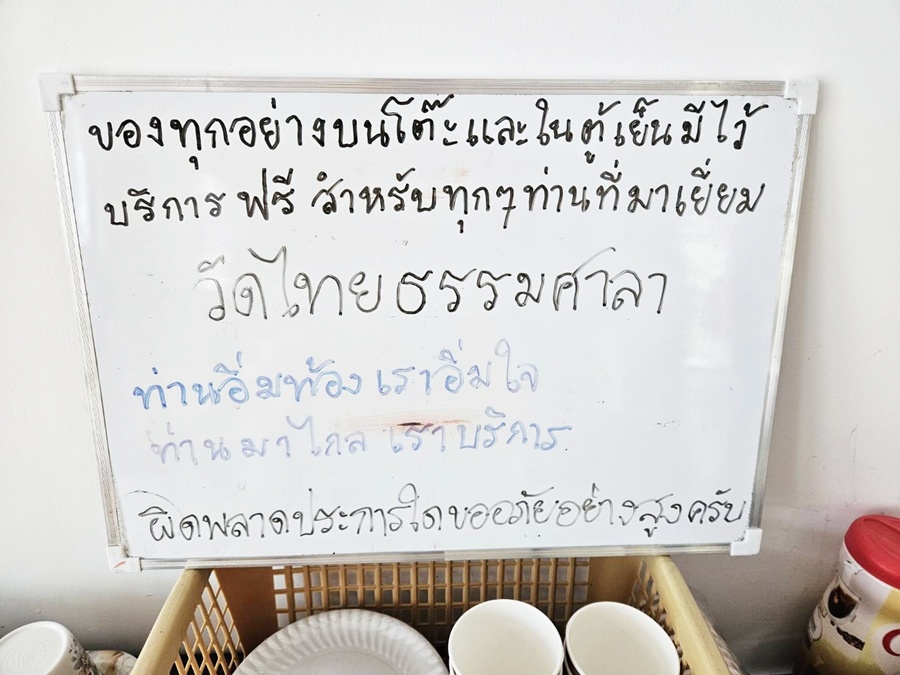 ของทุกอย่างบนโต๊ะและในตู้เย็นมีไว้
บริการ ฟรี สำหรับทุกๆท่านที่มาเยี่ยม
วัดไทยธรรมศาลา
ท่านอิ่มท้อง เราอิ่มใจ
ท่านมาไกล เราบริการ
ผิดพลาดประการใดขออภัยอย่างสูงครับ